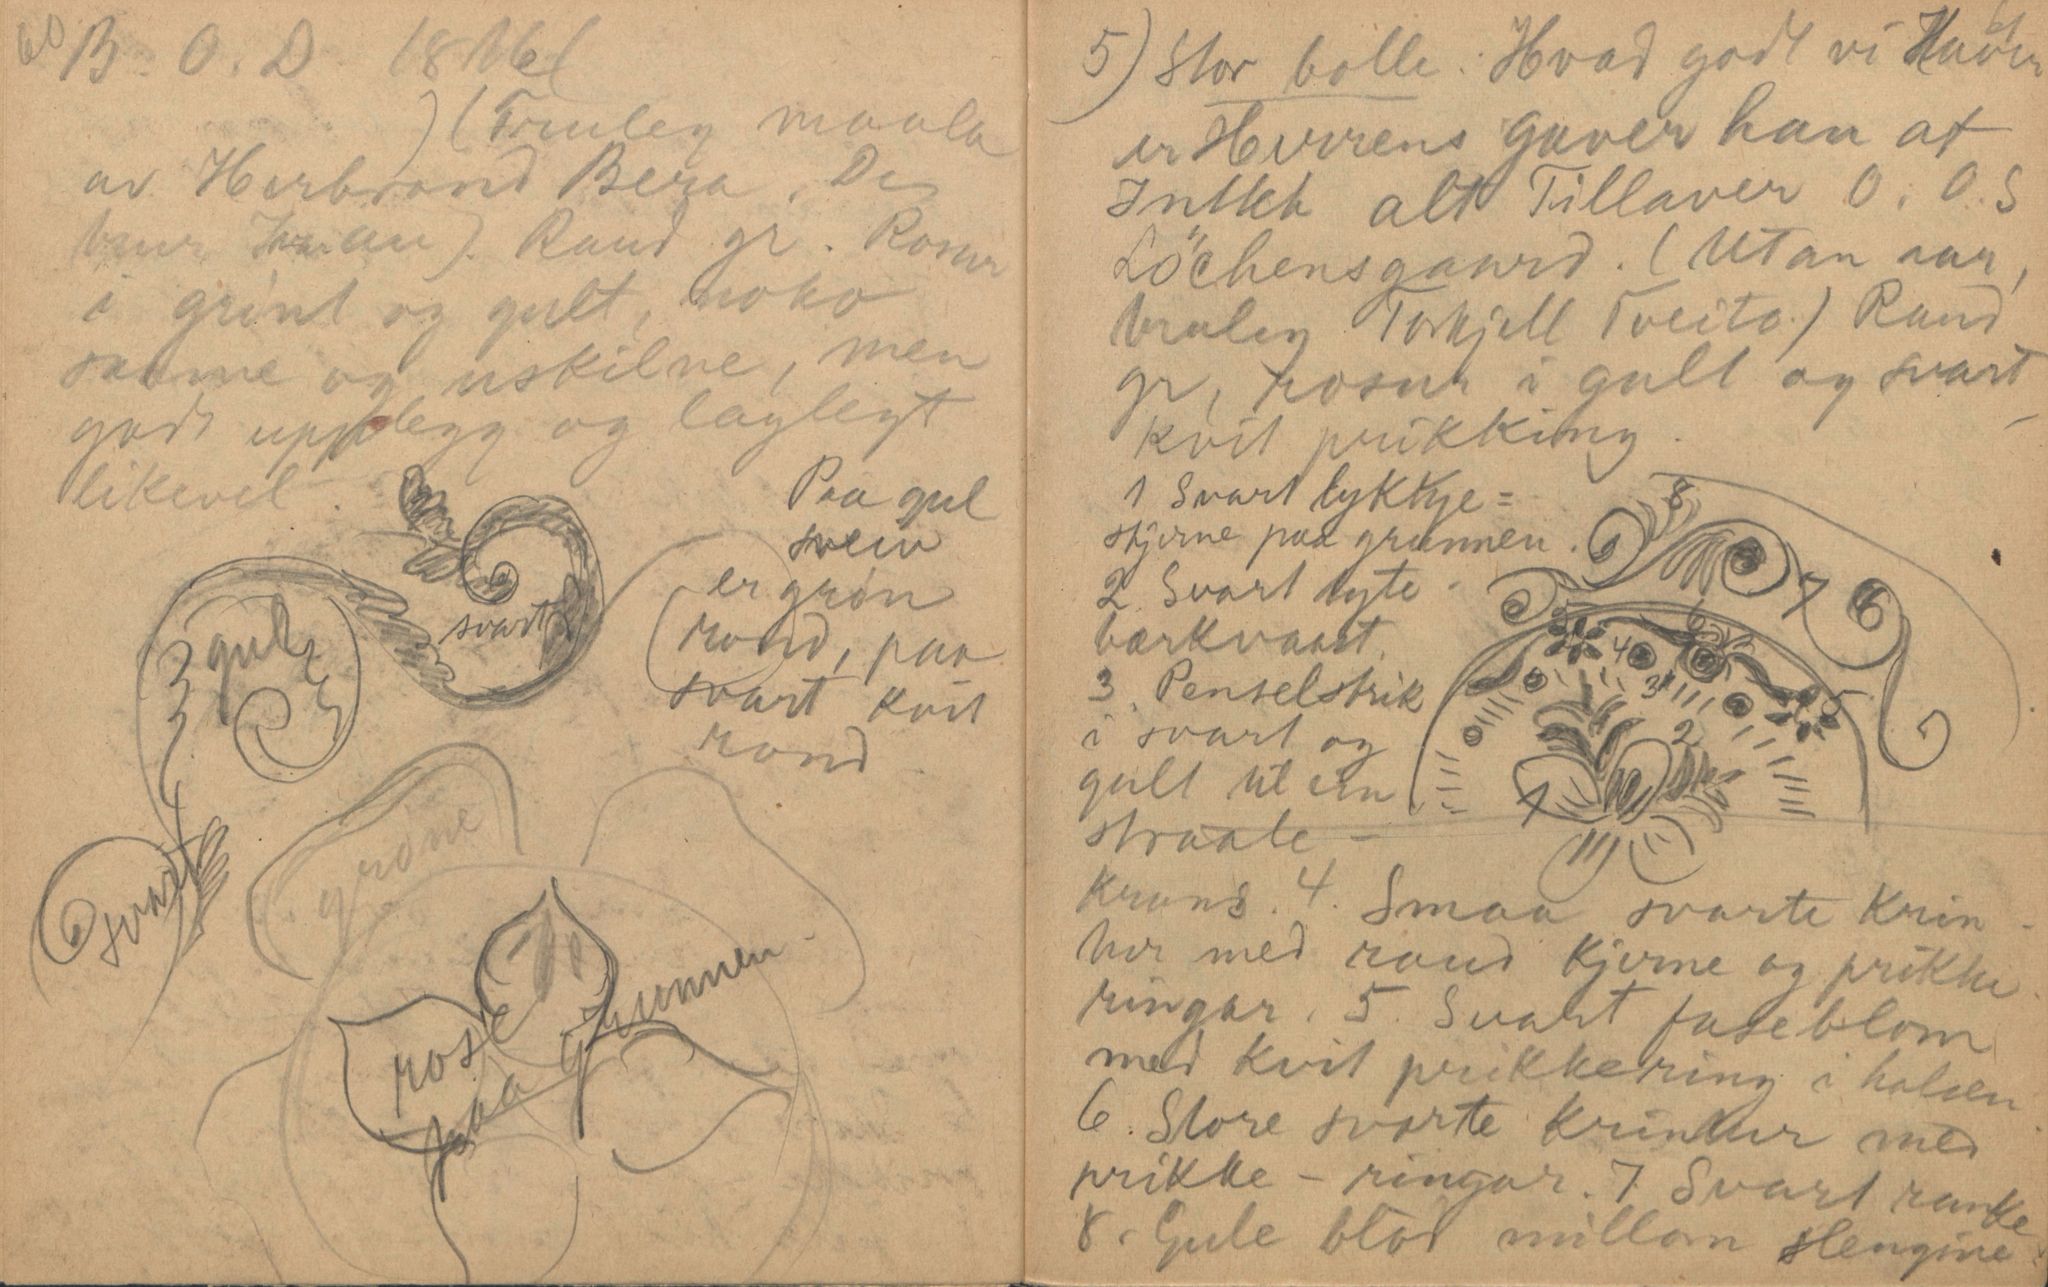 60
B. O. D. 18
) (Truleg maala
av Herbrand Bera.
Raud gr. Rosur
i grönt og gult, noko
samme og uskilne, men
godt upplegg og laglegt
likevel.
Paa gul
svein
er grön
rond, paa
svart kvit
rond
svart
gul
svart
gröne
rose
paa grunnen
61
5) Stor bolle. Hvad godt vi Haver
er Herrens gaver han at
alt Tillaver O. O. S
Löchensgaard. (Utan aar,
truleg Torkjell Tveito.) Raud
gr, rosur i gult og svart,
kvit prikking.
1 Svart lykkje=
stjerne paa grunnen.
2. Svart lyte
bærkvaart.
3. Penselstrik
i svart og
gult til ein
straale-
krans. 4. Smaa svarte krin-
lur med raud kjerne og prikke
ringar. 5. Svart faseblom
med kvit prikkering i halsen
6. Store svarte krinlur med
prikke-ringar. 7 Svart ranke
8. Gule blad millom slengine
8
7
6
5
4
3
5
2
1